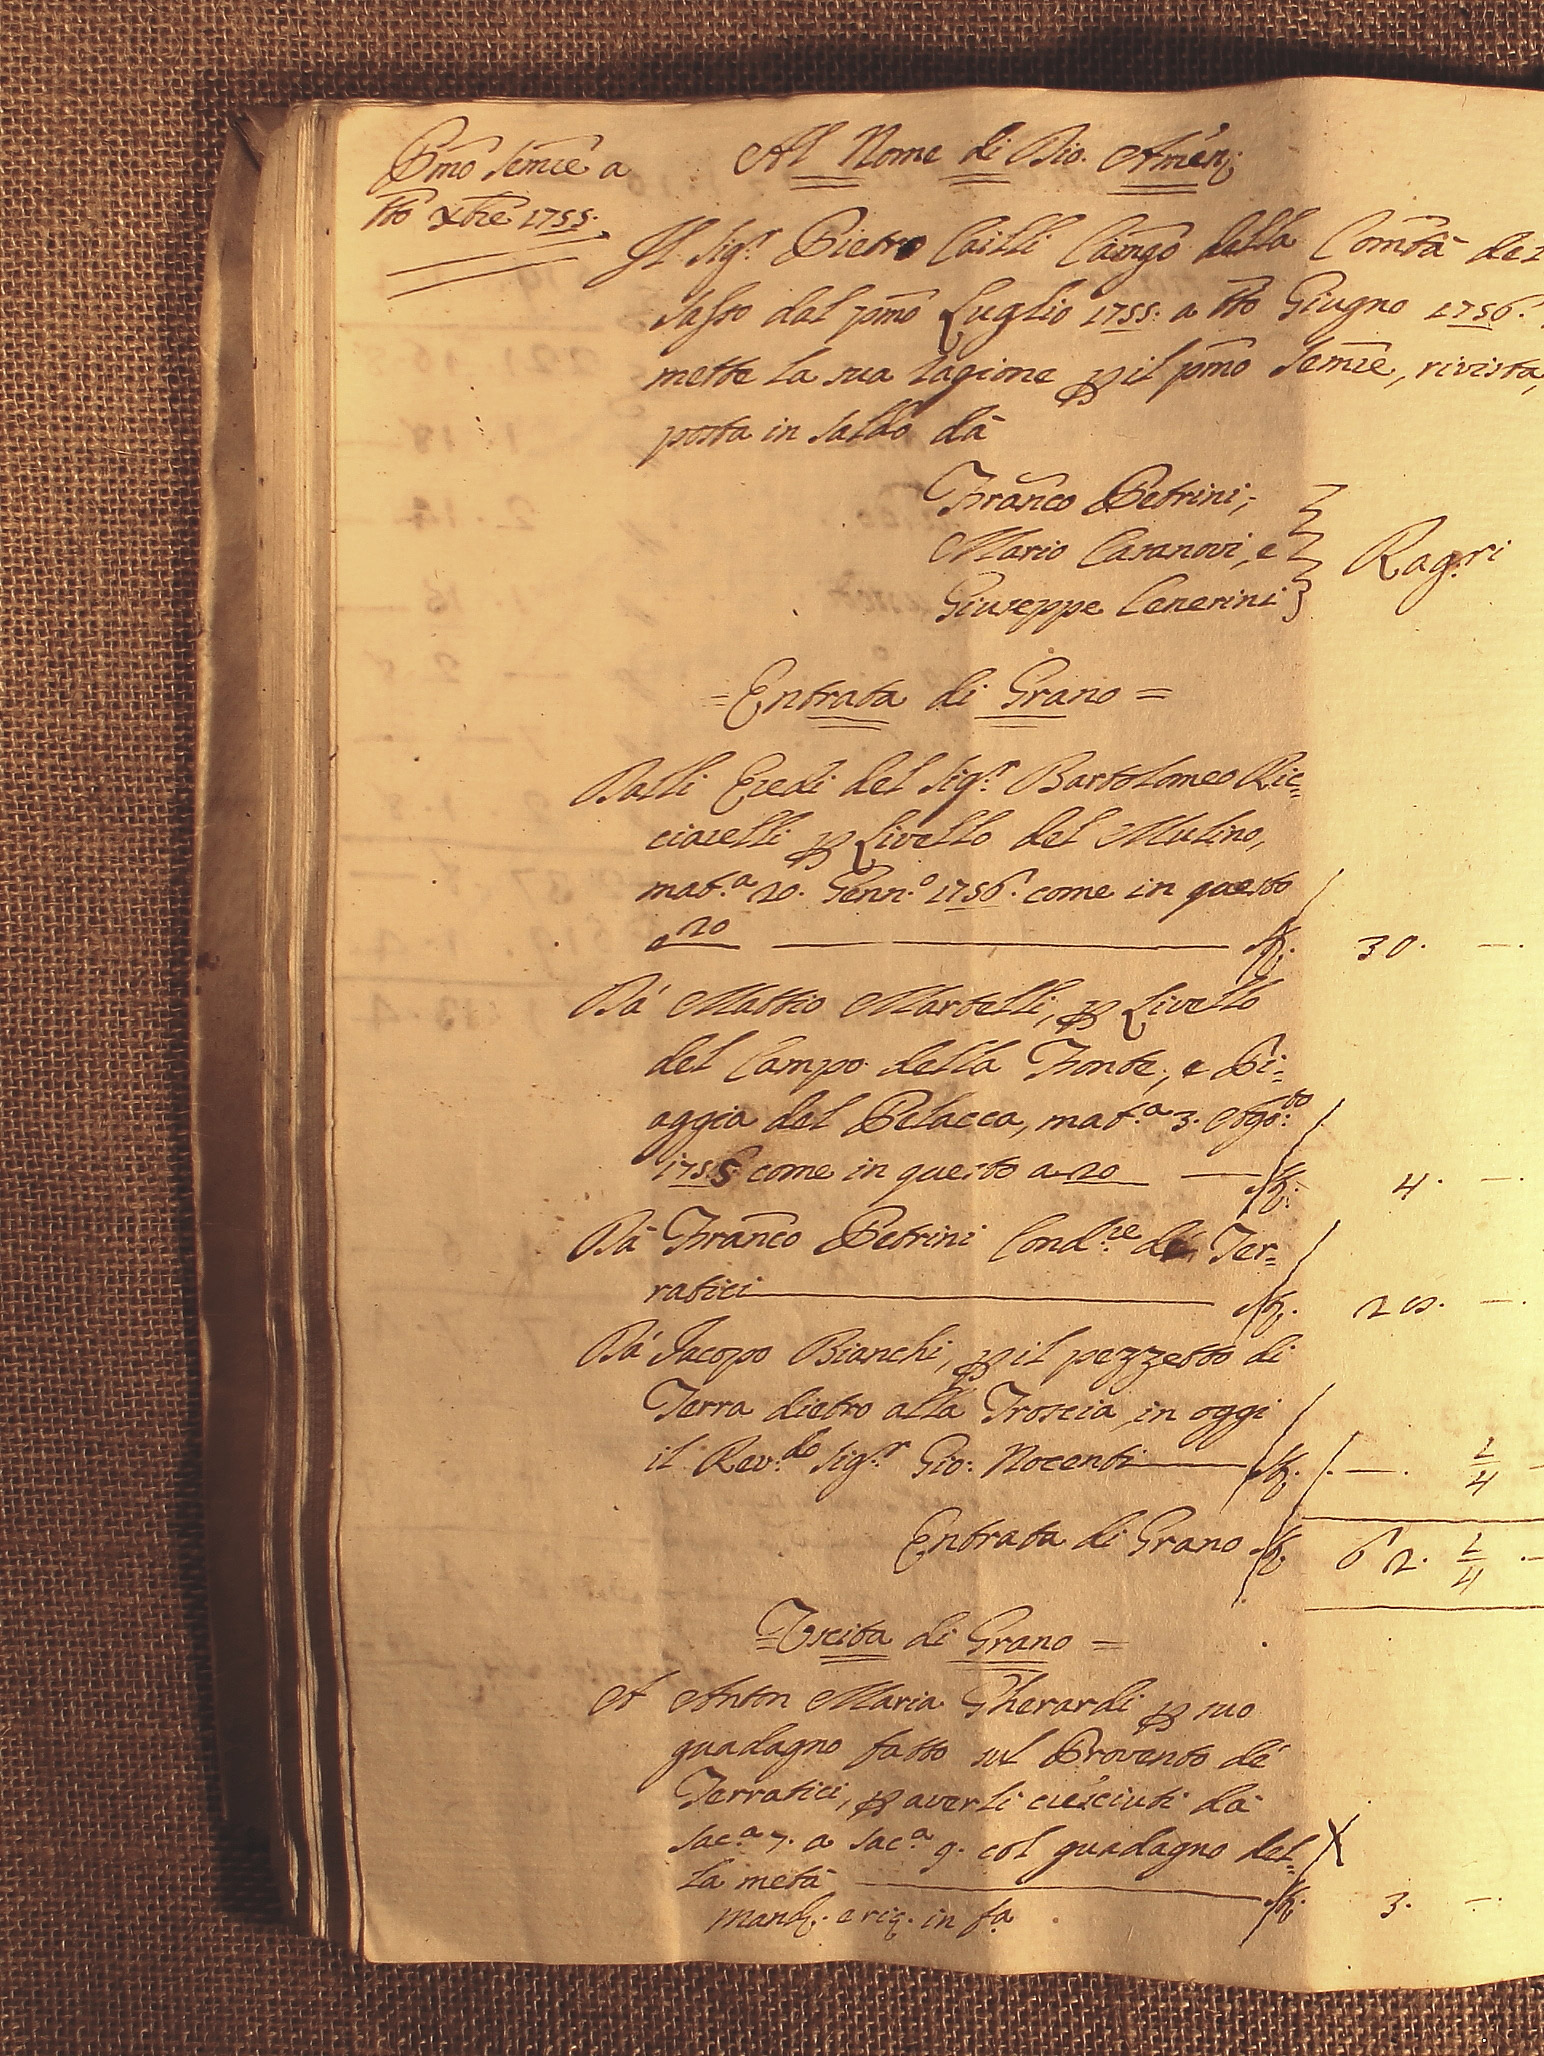 Pmo Semre a
tto Xbre 1755.
Al Nome di Dio. Amen.
Il Sigr. Pietro Cailli Camgo della Comtà del
Sasso dal pmo Luglio 1755. a tto Giugno 1756.
mette la sua ragione p il pmo Semre, rivista,
posta in saldo dà
Franco Petrini;
Mario Casanovi, e
Giuseppe Cenerini
Rag.ri
= Entrata di Grano =
Dalli Eredi del Sigr. Bartolomeo Ric=
ciarelli p Livello del Mulino,
mat.a 20. Genn.o 1756. come in questo
a 20 St. 30. —.
Dà Mattio Martelli, p Livello
del Campo della Fonte, e Pi=
aggia del Pelacca, mat.a 3. Ago.to
1755 come in questo a 20 — St. 4. —.
Dà Franco Petrini Cond.re dé Ter=
ratici St. 28. —.
Dà Jacopo Bianchi, p il pezzetto di
Terra dietro alla Troscia in oggi
il Rev.do Sigr. Gio: Nocenti St. —. 1/4 —
Entrata di Grano St. 62. 1/4 —
= Uscita di Grano =
A Anton Maria Gherardi p suo
guadagno fatto sul Provento dé
Terratici, p averli cresciuti dà
Sac.a 7. a Sac.a 9. col guadagno del=
la metà St. 3. —.
Mand. e ric. in fa